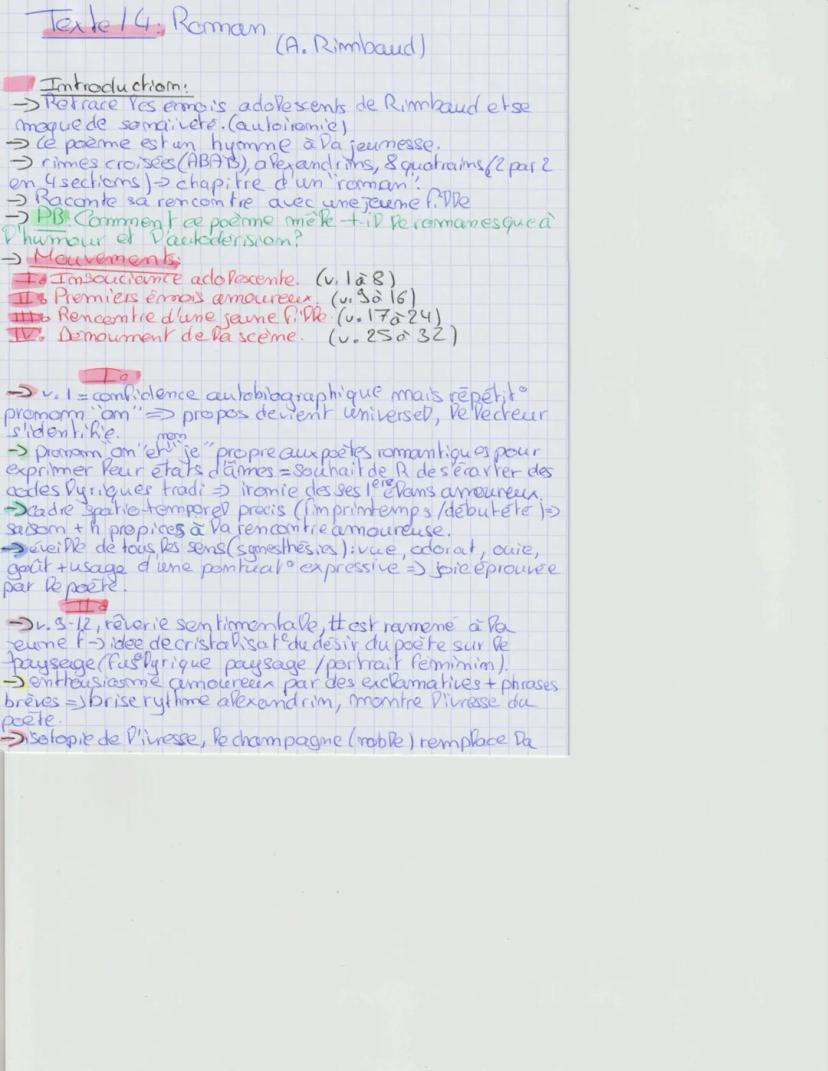 Texte 14: Roman
(A. Rimbaud)
Introduction:
→ Retrace les émois adolescents de Rimbaud et se
moque de sa naïveté. (autoironie)
→ Ce poème est un hymne à la jeunesse.
→ rimes croisées (ABAB), alexandrins, 8 quatrains (2 par 2
en 4 sections) → chapitre d'un "roman".
→ Raconte sa rencontre avec une jeune fille
→ PB: Comment ce poème mêle-t-il le romanesque à
l'humour et l'autodérision?
→ Mouvements:
I. Insouciance adolescente. (v. 1 à 8)
II. Premiers émois amoureux. (v. 9 à 16)
III. Rencontre d'une jeune fille. (v. 17 à 24)
IV. Denoument de la scène. (v. 25 à 32)
I.
→ v. 1 = confidence autobiographique mais répétit°
pronom "on" => propos devient universel, le lecteur
s'identifie.
→ pronom "on" et non "je" propre aux poètes romantiques pour
exprimer leur états d'âmes = souhait de R de s'écarter des
codes lyriques tradi => ironie des ses 1ers élans amoureux.
→ cadre spatio-temporel précis (fin printemps / début été) =>
saison + h propices à la rencontre amoureuse.
→ éveille de tous les sens (synesthésies): vue, odorat, ouïe,
goût + usage d'une ponctuat° expressive => joie éprouvée
par le poète.
II.
→ v. 9-12, rêverie sentimentale, tt est ramené à la
jeune f → idée de cristalisat° du désir du poète sur le
paysage (fus° lyrique paysage / portrait féminin).
→ enthousiasme amoureux par des exclamatives + phrases
brèves => brise rythme alexandrin, montre l'ivresse du
poète.
→ isotopie de l'ivresse, le champagne (noble) remplace la